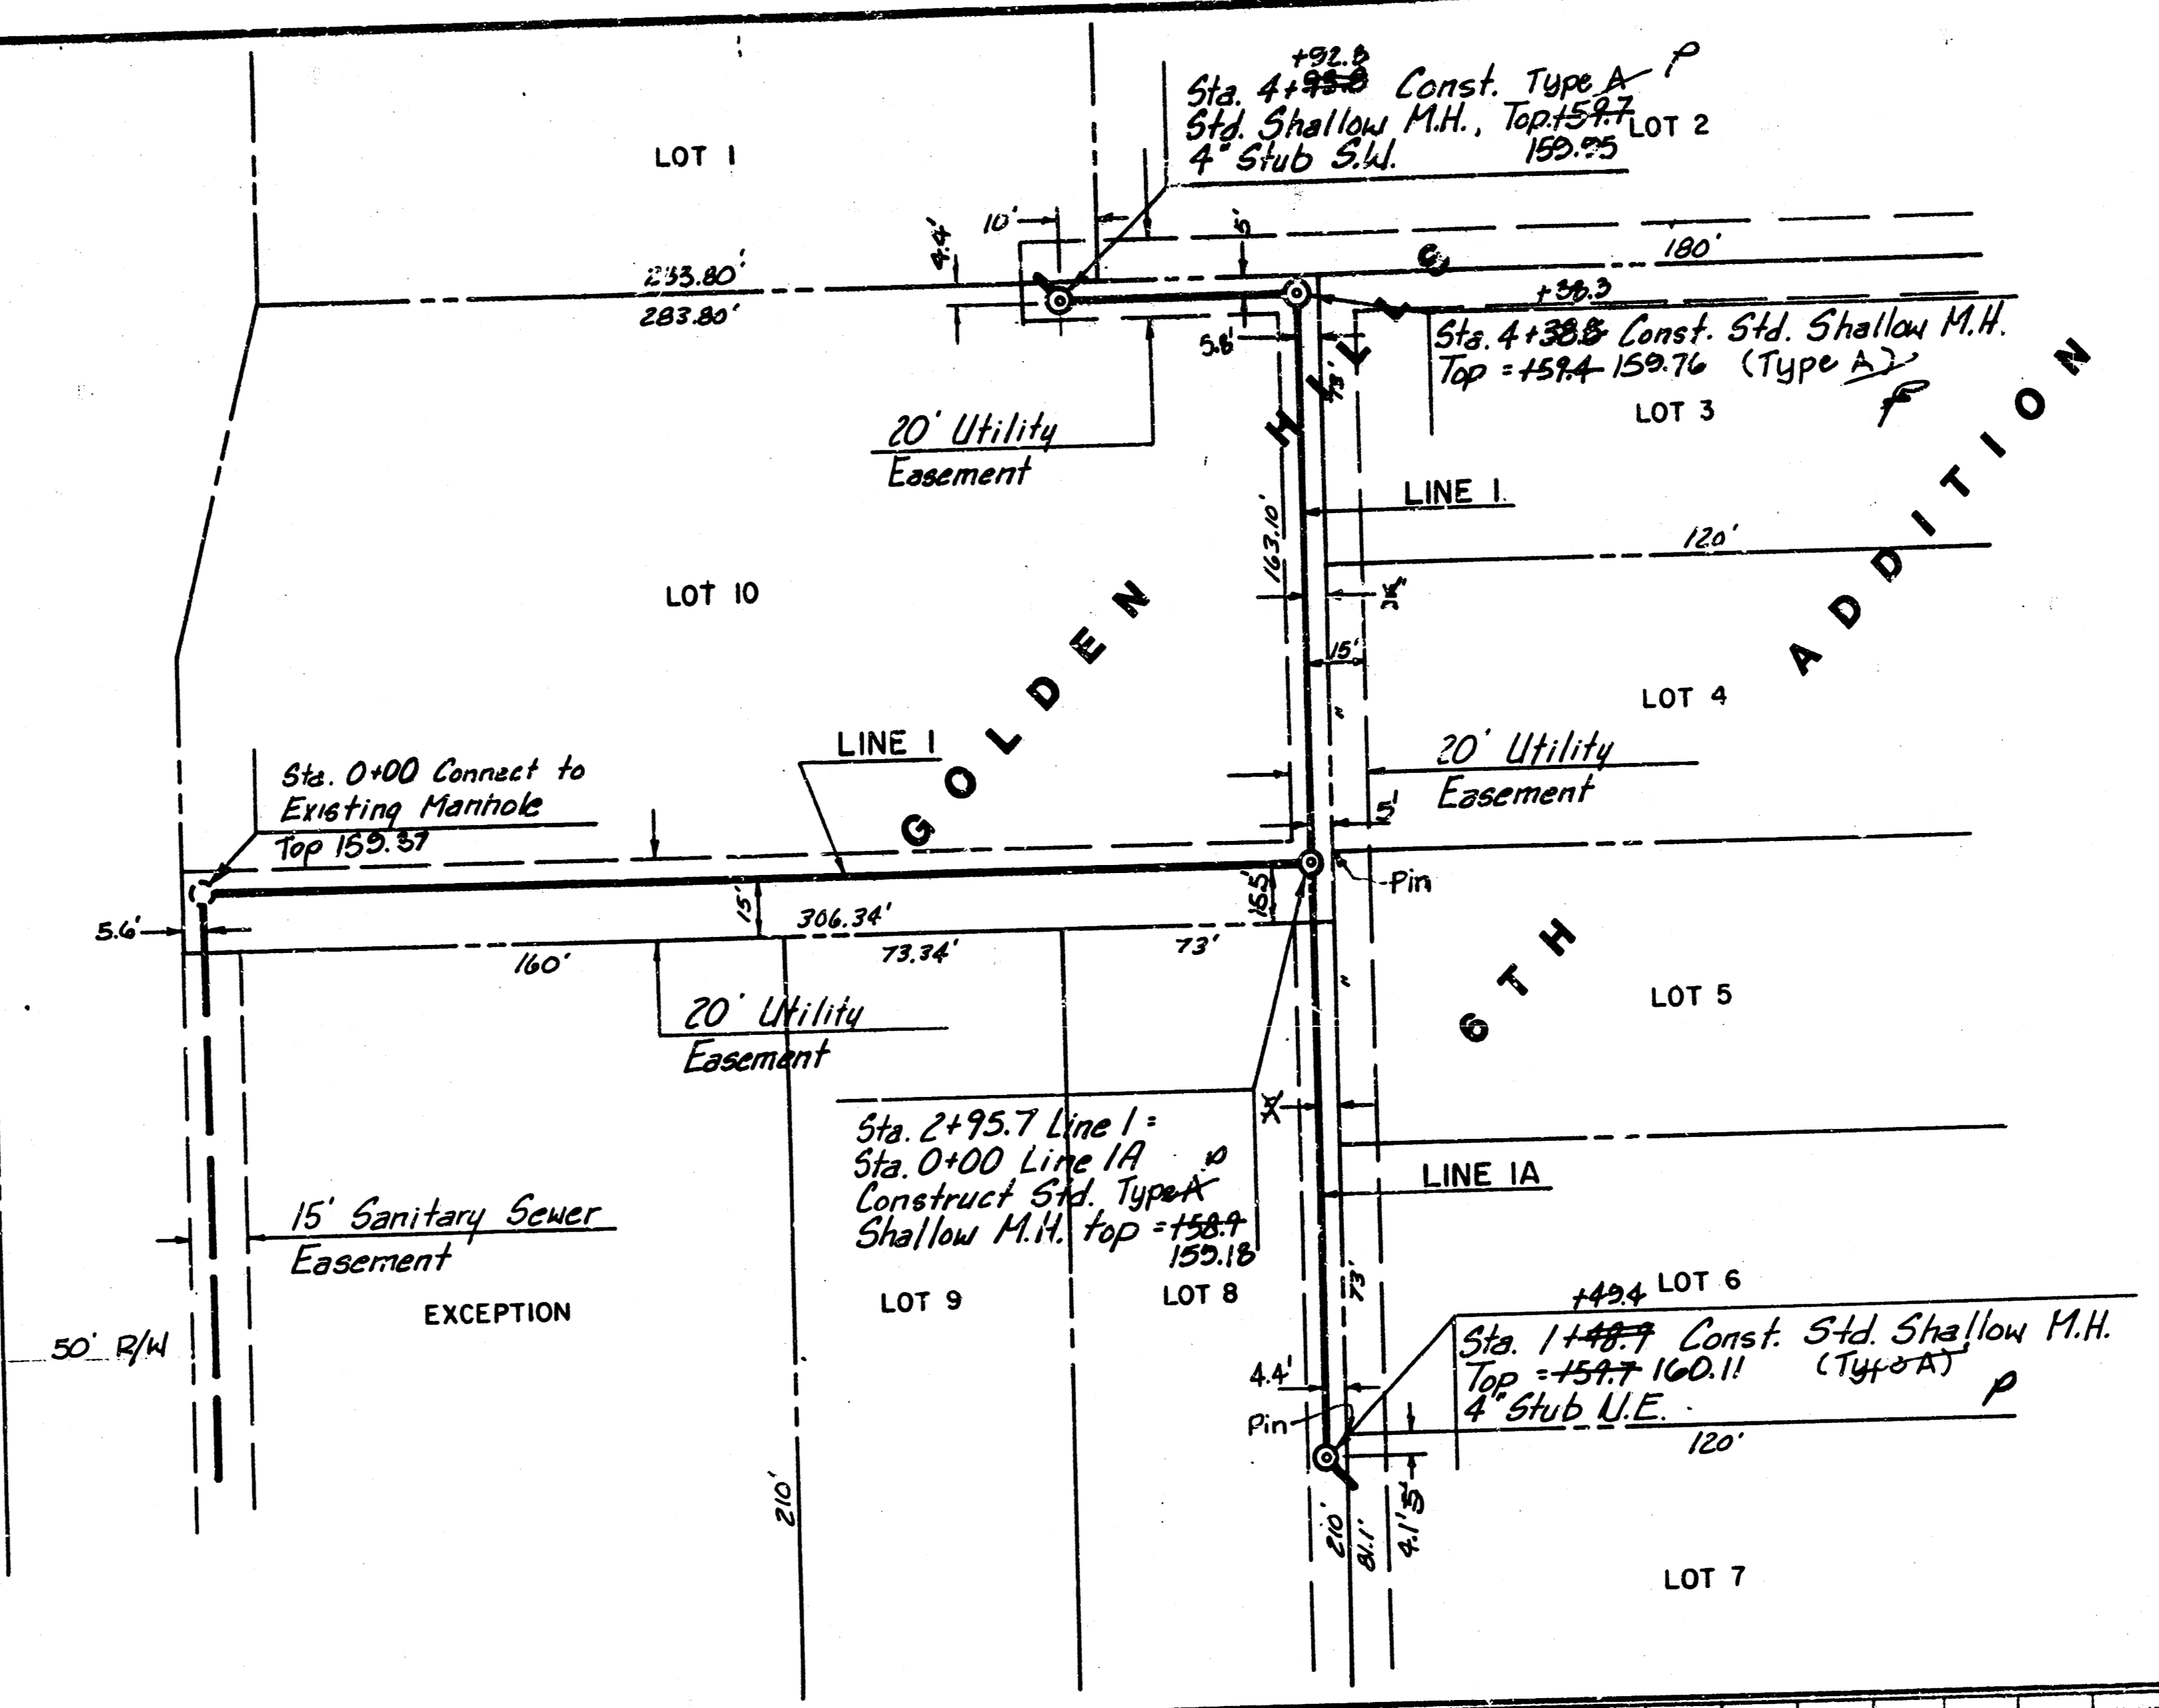 +92.8
Sta. 4+93.8 Const. Type A P
Std. Shallow M.H., Top.+59.7
4" Stub S.W. 159.95
LOT 2
LOT 1
10'
4.4'
5'
180'
233.80'
283.80'
+38.3
Sta. 4+38.8 Const. Std. Shallow M.H.
Top = +59.4 159.76 (Type A) P
LOT 3
5.8'
73'
20' Utility
Easement
LINE 1
163.10'
120'
LOT 10
15'
"
LOT 4
GOLDEN HILLS
6TH ADDITION
LINE 1
20' Utility
Easement
5'
Sta. 0+00 Connect to
Existing Manhole
Top 159.37
Pin
15'
15.5'
306.34'
5.6'
160'
73.34'
73'
"
LOT 5
20' Utility
Easement
Sta. 2+95.7 Line 1 =
Sta. 0+00 Line 1A
Construct Std. Type A P
Shallow M.H. top = +58.9
159.18
LINE 1A
15' Sanitary Sewer
Easement
EXCEPTION
LOT 9
LOT 8
73'
LOT 6
50' R/W
+49.4
Sta. 1+48.9 Const. Std. Shallow M.H.
Top = +59.7 160.11 (Type A)
4" Stub N.E. P
4.4'
Pin
120'
210'
210'
81.1'
4.1'
5'
LOT 7